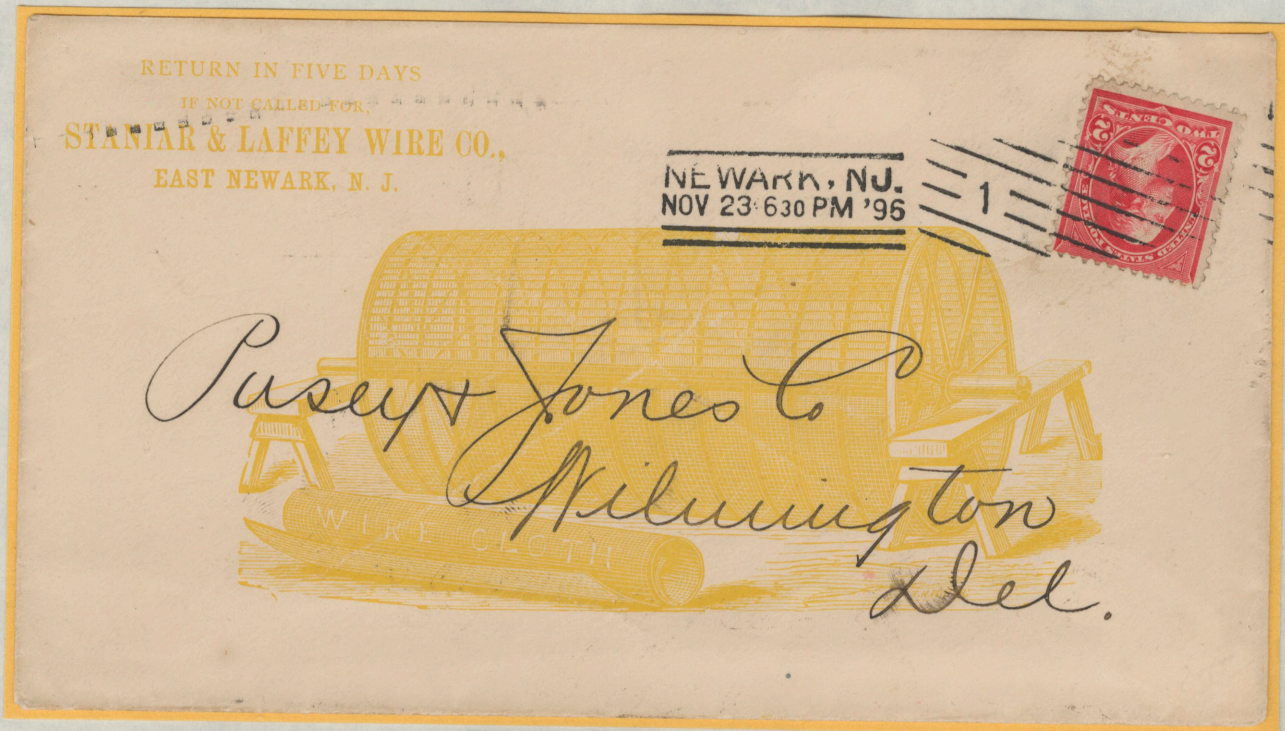 RETURN IN FIVE DAYS
IF NOT CALLED FOR,
STANIAR & LAFFEY WIRE CO.,
EAST NEWARK, N. J.
NEWARK, NJ.
NOV 23 630 PM '96
1
TWO CENTS
2 2
UNITED STATES POSTAGE
Pusey & Jones Co
Wilmington
Del.
WIRE CLOTH